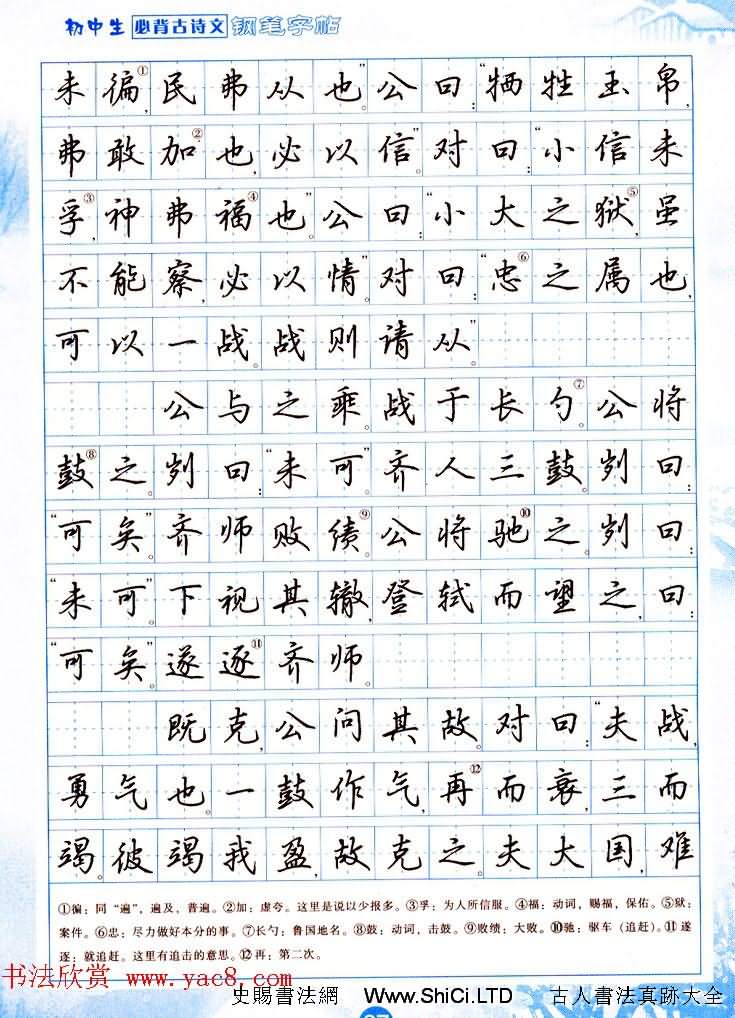 初中生 必背古诗文 钢笔字帖
未徧①，民弗从也。”公曰：“牺牲玉帛，
弗敢加②也，必以信。”对曰：“小信未
孚③，神弗福④也。”公曰：“小大之狱⑤，虽
不能察，必以情。”对曰：“忠⑥之属也，
可以一战。战则请从。”
公与之乘。战于长勺⑦。公将
鼓⑧之。刿曰：“未可。”齐人三鼓。刿曰：
“可矣。”齐师败绩⑨。公将驰⑩之。刿曰：
“未可。”下视其辙，登轼而望之，曰：
“可矣。”遂逐⑪齐师。
既克，公问其故。对曰：“夫战，
勇气也。一鼓作气，再⑫而衰，三而
竭。彼竭我盈，故克之。夫大国，难
①徧：同“遍”，遍及，普遍。②加：虚夸。这里是说以少报多。③孚：为人所信服。④福：动词，赐福，保佑。⑤狱：
案件。⑥忠：尽力做好本分的事。⑦长勺：鲁国地名。⑧鼓：动词，击鼓。⑨败绩：大败。⑩驰：驱车（追赶）。⑪遂
逐：就追赶。这里有追击的意思。⑫再：第二次。
书法欣赏 www.yac8.com
史賜書法網 Www.ShiCi.LTD 古人書法真跡大全